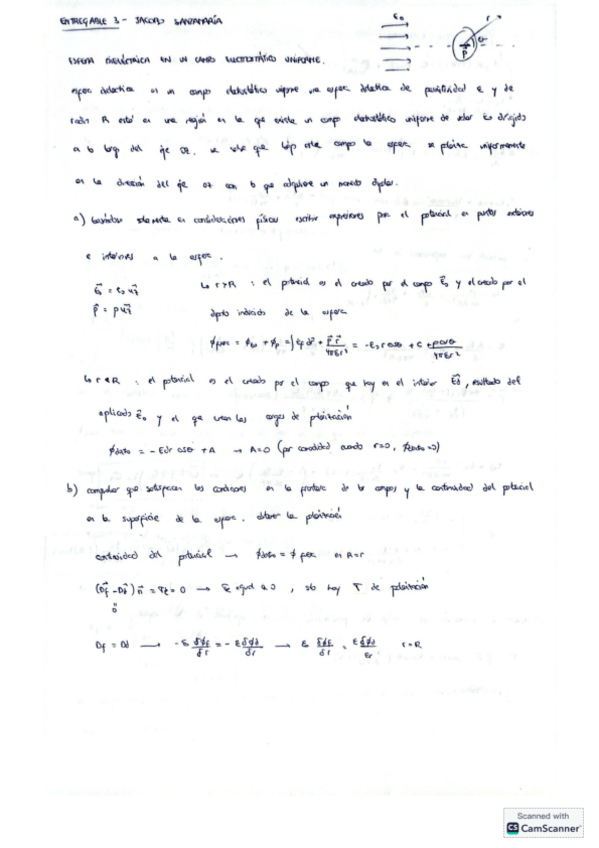 ENTREGABLE 3 - JACOBO SANTAMARÍA
E₀
r
P
ESFERA DIELÉCTRICA EN UN CAMPO ELECTROSTÁTICO UNIFORME.
esfera dieléctrica en un campo electrostático uniforme una esfera dieléctrica de permitividad ε y de
radio R está en una región en la que existe un campo electrostático uniforme de valor E₀ dirigido
a lo largo del eje OZ. se sabe que bajo este campo la esfera se polariza uniformemente
en la dirección del eje OZ con lo que adquiere un momento dipolar.
a) basándose solamente en consideraciones físicas escribir expresiones para el potencial en puntos exteriores
e interiores a la esfera.
E⃗₀ = E₀ u⃗z
↳ r>R : el potencial es el creado por el campo E⃗₀ y el creado por el
p⃗ = p u⃗z
dipolo inducido de la esfera
ϕfuera = ϕE₀ + ϕp = -∫ E⃗ dr⃗ + p⃗ r⃗ / 4πεr³ = -E₀ r cosθ + C + p cosθ / 4πεr²
↳ r<R : el potencial es el creado por el campo que hay en el interior E⃗d, resultado del
aplicado E⃗₀ y el que crean las cargas de polarización
ϕdentro = -Ed r cosθ + A → A=0 (por comodidad cuando r=0, ϕdentro=0)
b) comprobar que satisfacen las condiciones en la frontera de los campos y la continuidad del potencial
en la superficie de la esfera. obtener la polarización
continuidad del potencial → ϕdentro = ϕ fuera en R=r
(D⃗f - D⃗d) n⃗ = σ = 0 → igual a 0, sólo hay σ de polarización
Df = Dd → -ε₀ δϕf/δr = -ε δϕd/δr → ε₀ δϕf/δr = ε δϕd/δr r=R
Scanned with
CS CamScanner